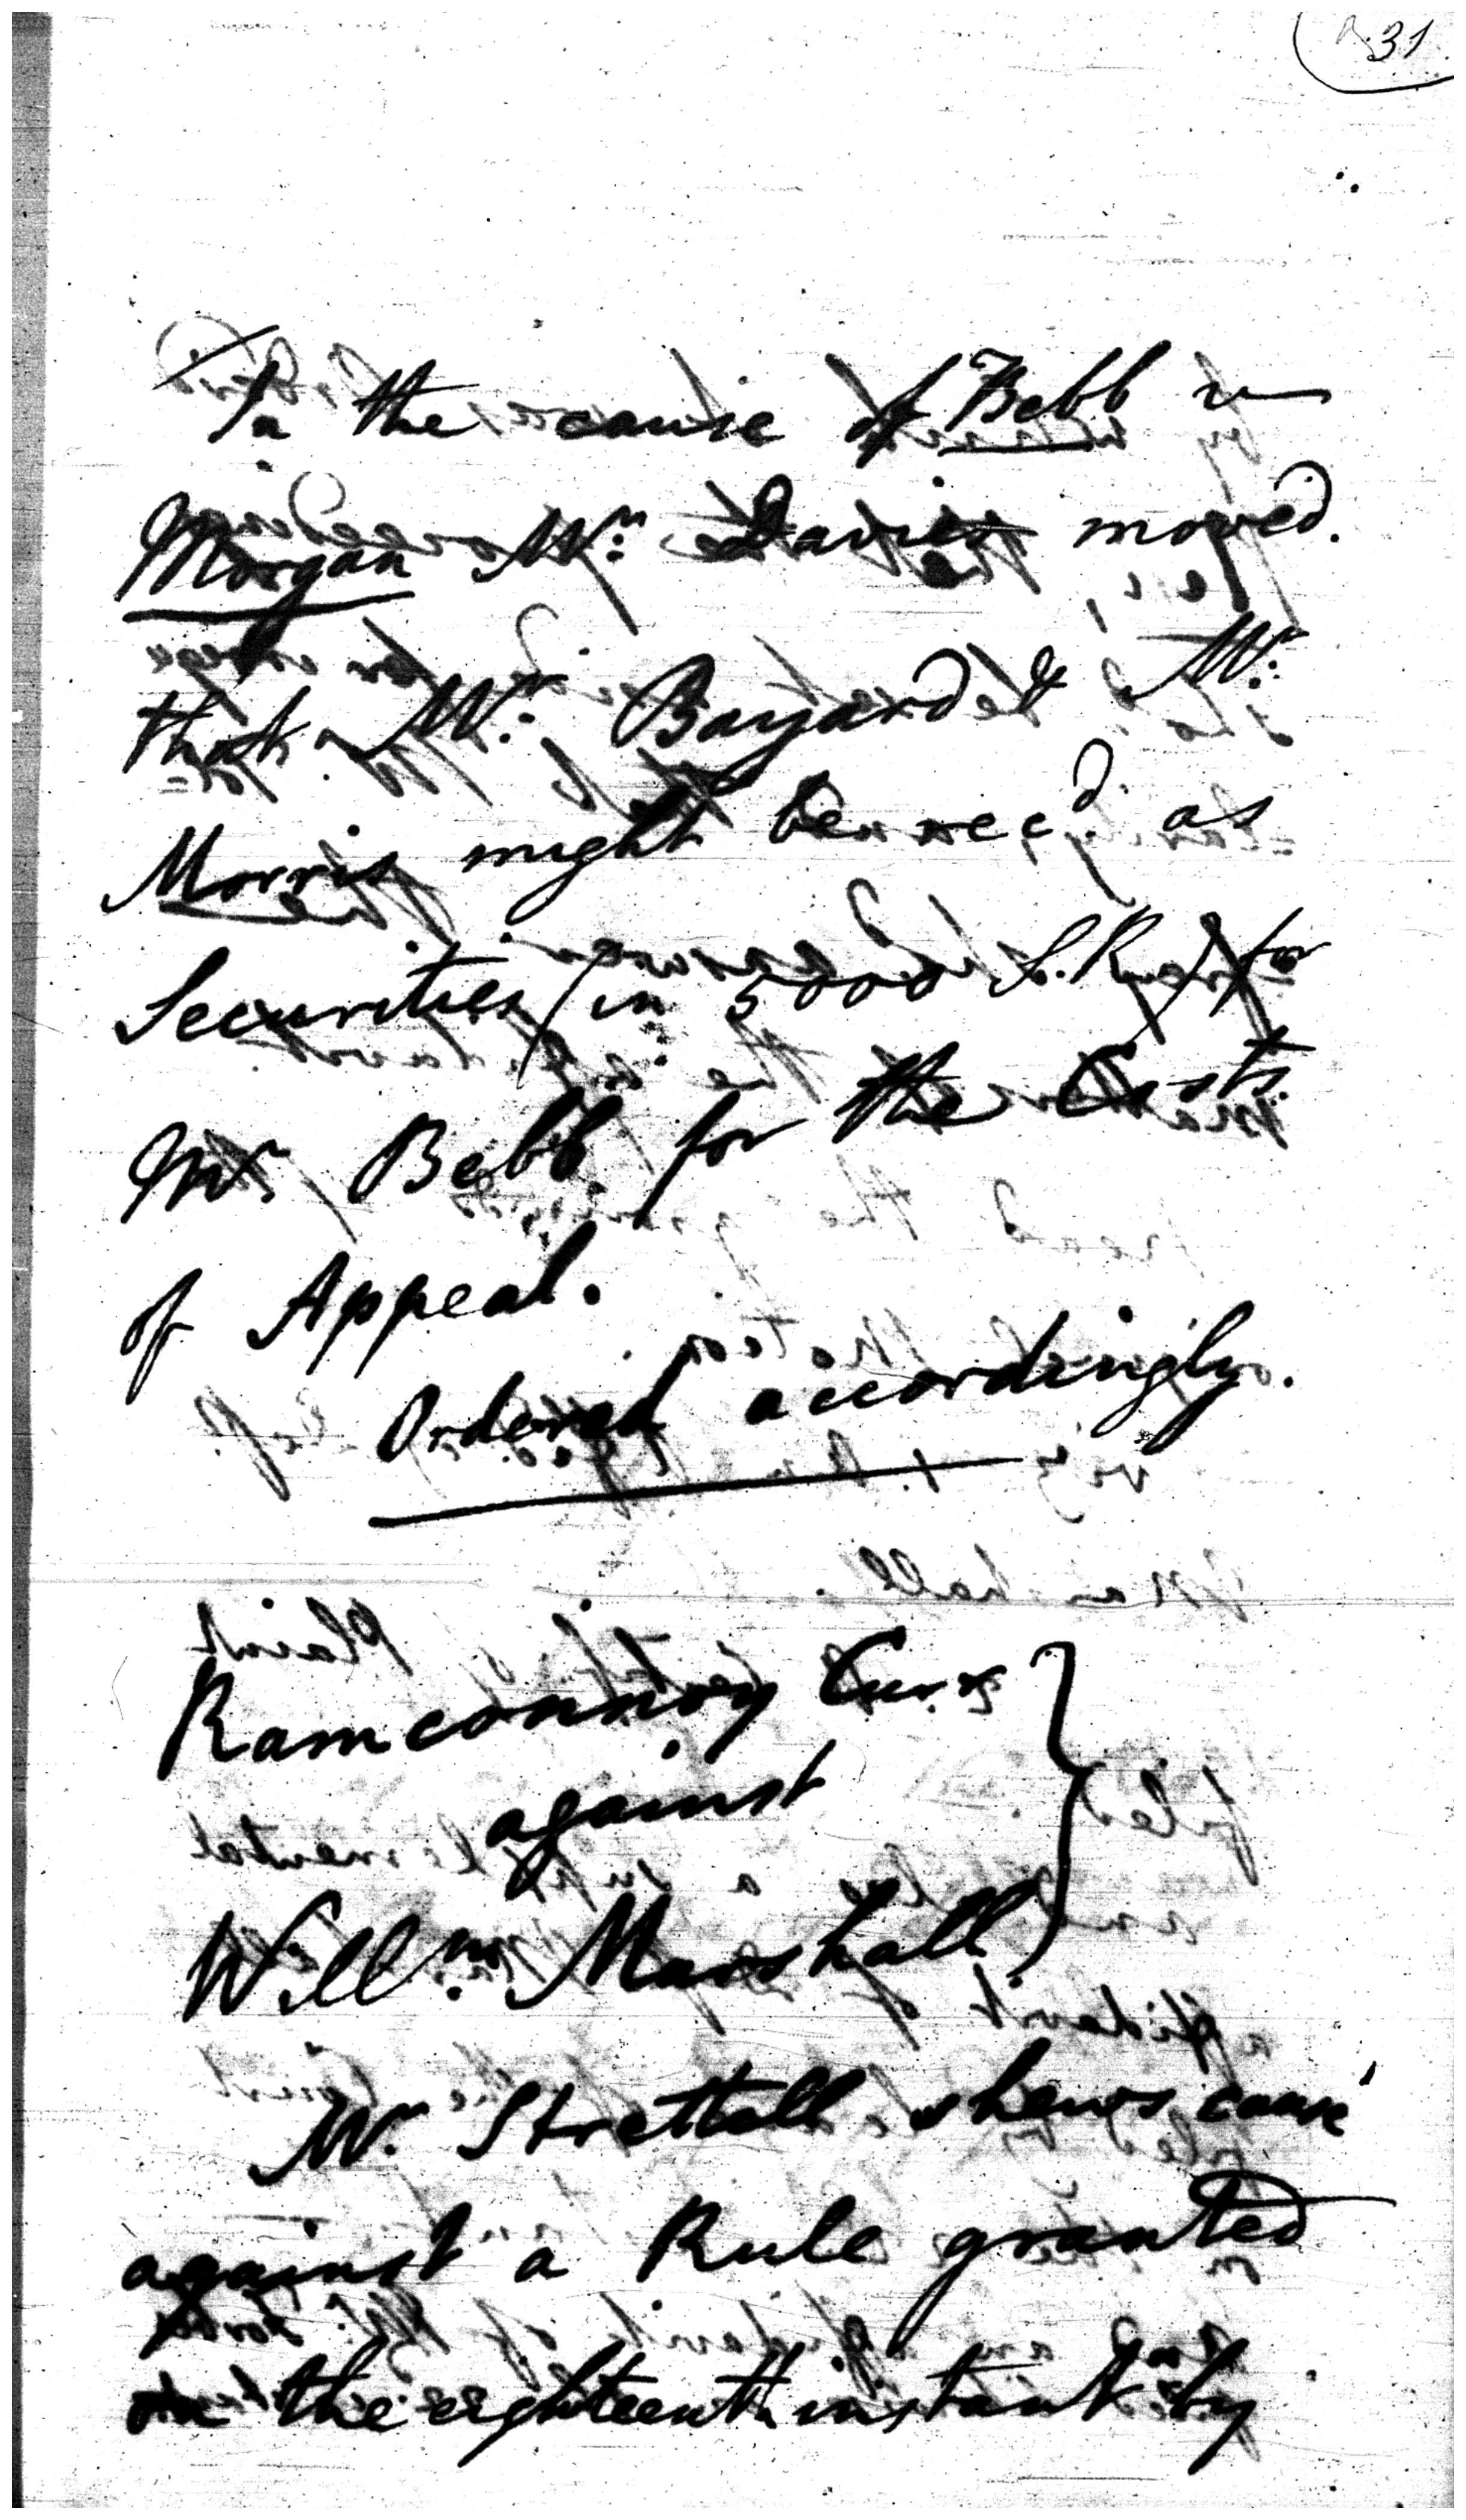 31
In the cause of Bebb v
Morgan Mr. Davies moved.
that Mr. Bayard & Mr.
Morris might be recd as
Securities (in 5000 S.R.) for
Mr. Bebb for the Costs
of Appeal.
Ordered accordingly.
Ramconnoy
against
Willm. Marshall
Mr. Strettell shews cause
against a Rule granted
on the eighteenth instant by